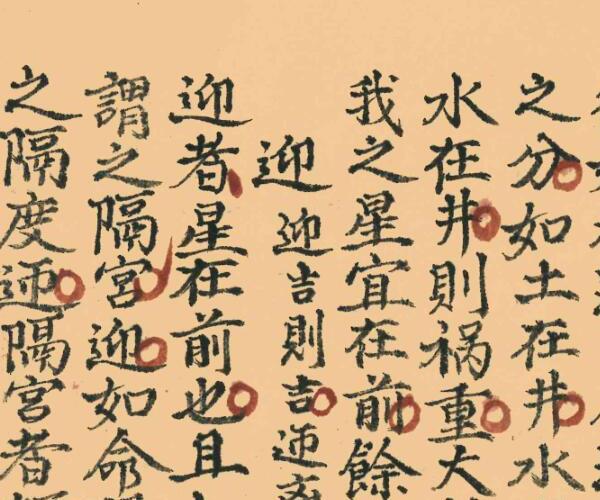 之分如土在井水
水在井則禍重大
我之星宜在前餘
迎迎吉則吉迎
迎者星在前也且
謂之隔宮迎如命
之隔度迎隔宮者